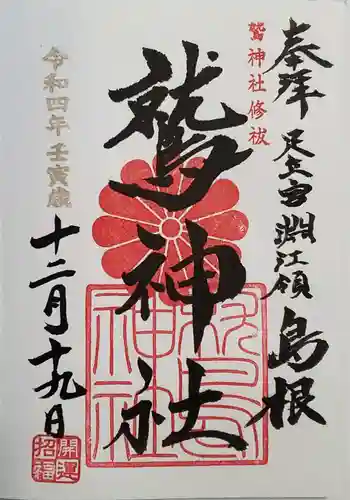 奉拝 足立宮 淵江領 島根
鷲神社修祓
鷲神社
令和四年壬寅歳
十二月十九日
開運招福